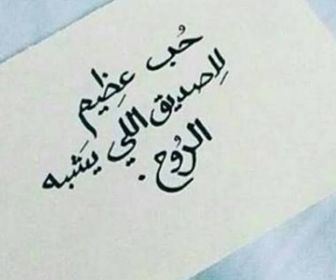 حُب عظِيم
لِلصديق اللي يشَبه
الرُوح .